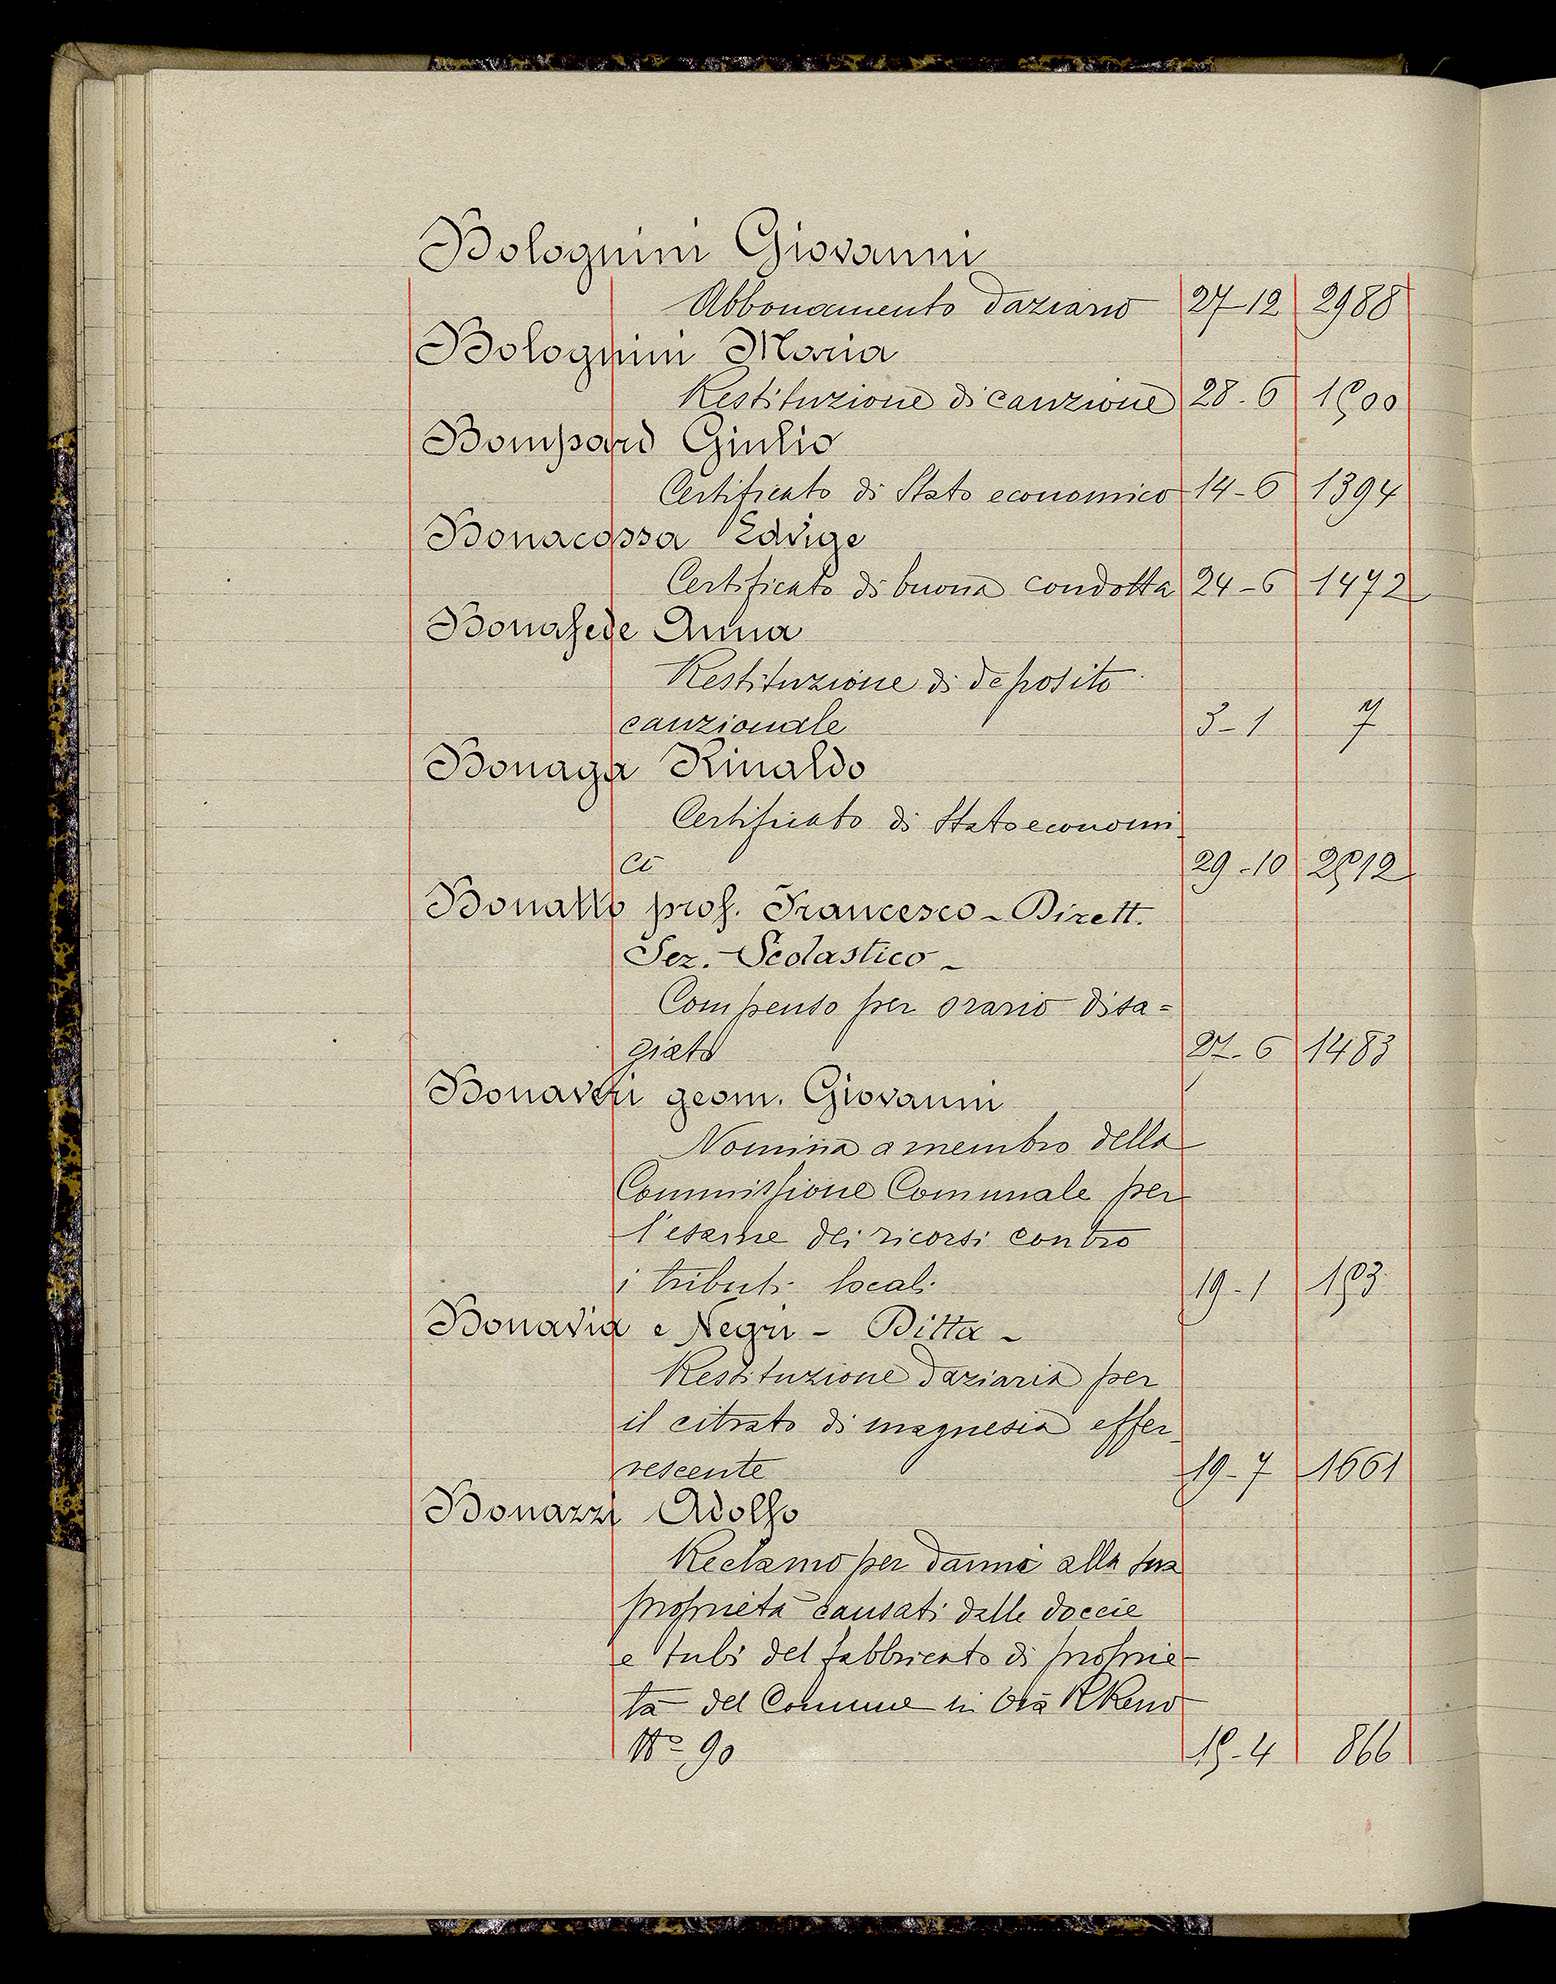 Bolognini Giovanni
Abbonamento daziario 27-12 2988
Bolognini Maria
Restituzione di cauzione 28-6 1500
Bompard Giulio
Certificato di Stato economico 14-6 1394
Bonacossa Edvige
Certificato di buona condotta 24-6 1472
Bonafede Anna
Restituzione di deposito
cauzionale 3-1 7
Bonaga Rinaldo
Certificato di Stato economi-
co 29-10 2512
Bonatto prof. Francesco - Dirett.
Sez. Scolastico -
Compenso per orario disa=
giato 27-6 1483
Bonaveri geom. Giovanni
Nomina a membro della
Commissione Comunale per
l'esame dei ricorsi contro
i tributi locali 19-1 153
Bonavia e Negri - Ditta -
Restituzione daziaria per
il citrato di magnesia effer-
vescente 19-7 1661
Bonazzi Adolfo
Reclamo per danni alla sua
proprietà causati dalle doccie
e tubi del fabbricato di proprie-
tà del Comune in Via R Reno
N° 90 15-4 866